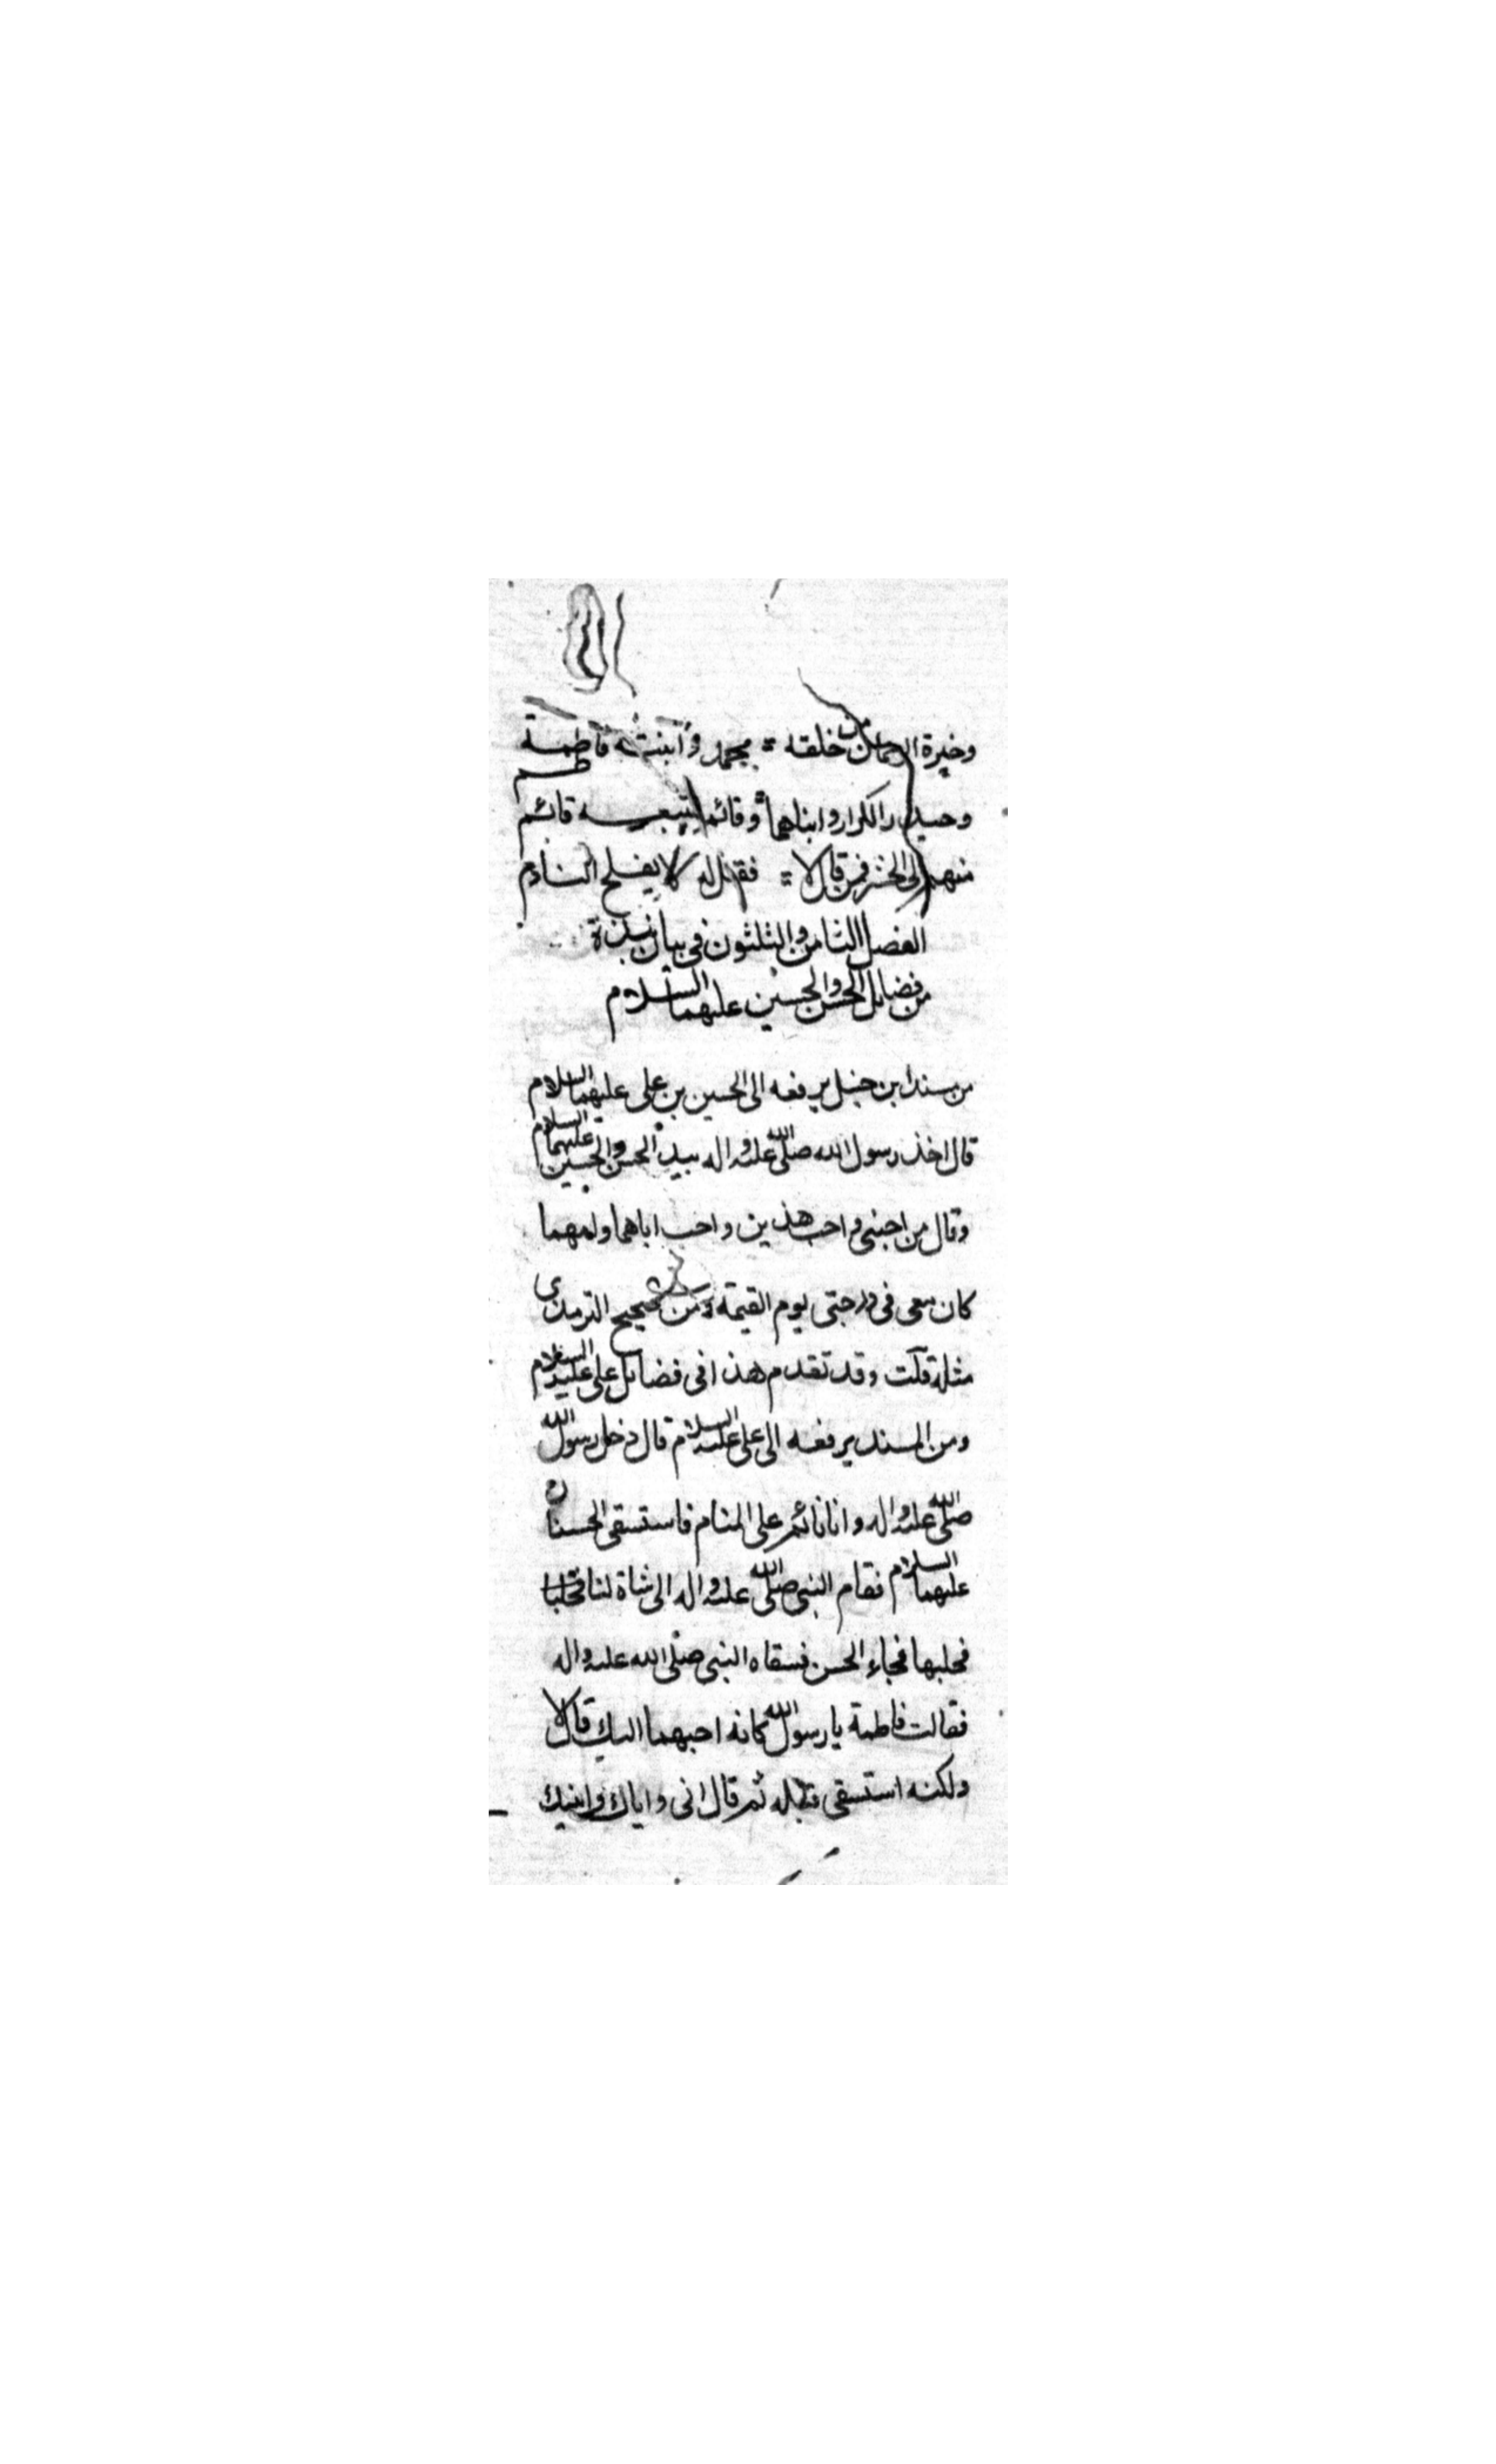 وخيرة الرحمان من خلقه = محمد وابنته فاطمة
وحيدر الكرار وابناهما وقائم يتبعه قائم
منهم الى الحشر فمن قال لا = فقل له لا يفلح النادم
الفصل الثامن والثلثون في بيان نبذة
من فضايل الحسن والحسين عليهما السلام
من مسند ابن حنبل يرفعه الى الحسين بن على عليهما السلام
قال اخذ رسول الله صلى الله عليه واله بيد الحسن والحسين عليهما السلام
وقال من احبنى واحب هذين واحب اباهما وامهما
كان معى فى درجتى يوم القيمة ومن صحيح الترمذى
مثله قلت وقد تقدم هذا فى فضايل على عليه السلام
ومن المسند يرفعه الى على عليه السلام قال دخل رسول الله
صلى الله عليه واله وانا نائم على المنام فاستسقى الحسنان
عليهما السلام فقام النبى صلى الله عليه واله الى شاة لنا
فحلبها فجاء الحسن فسقاه النبى صلى الله عليه واله
فقالت فاطمة يا رسول الله كانه احبهما اليك قال لا
ولكنه استسقى قبله ثم قال انى واياك وابنيك